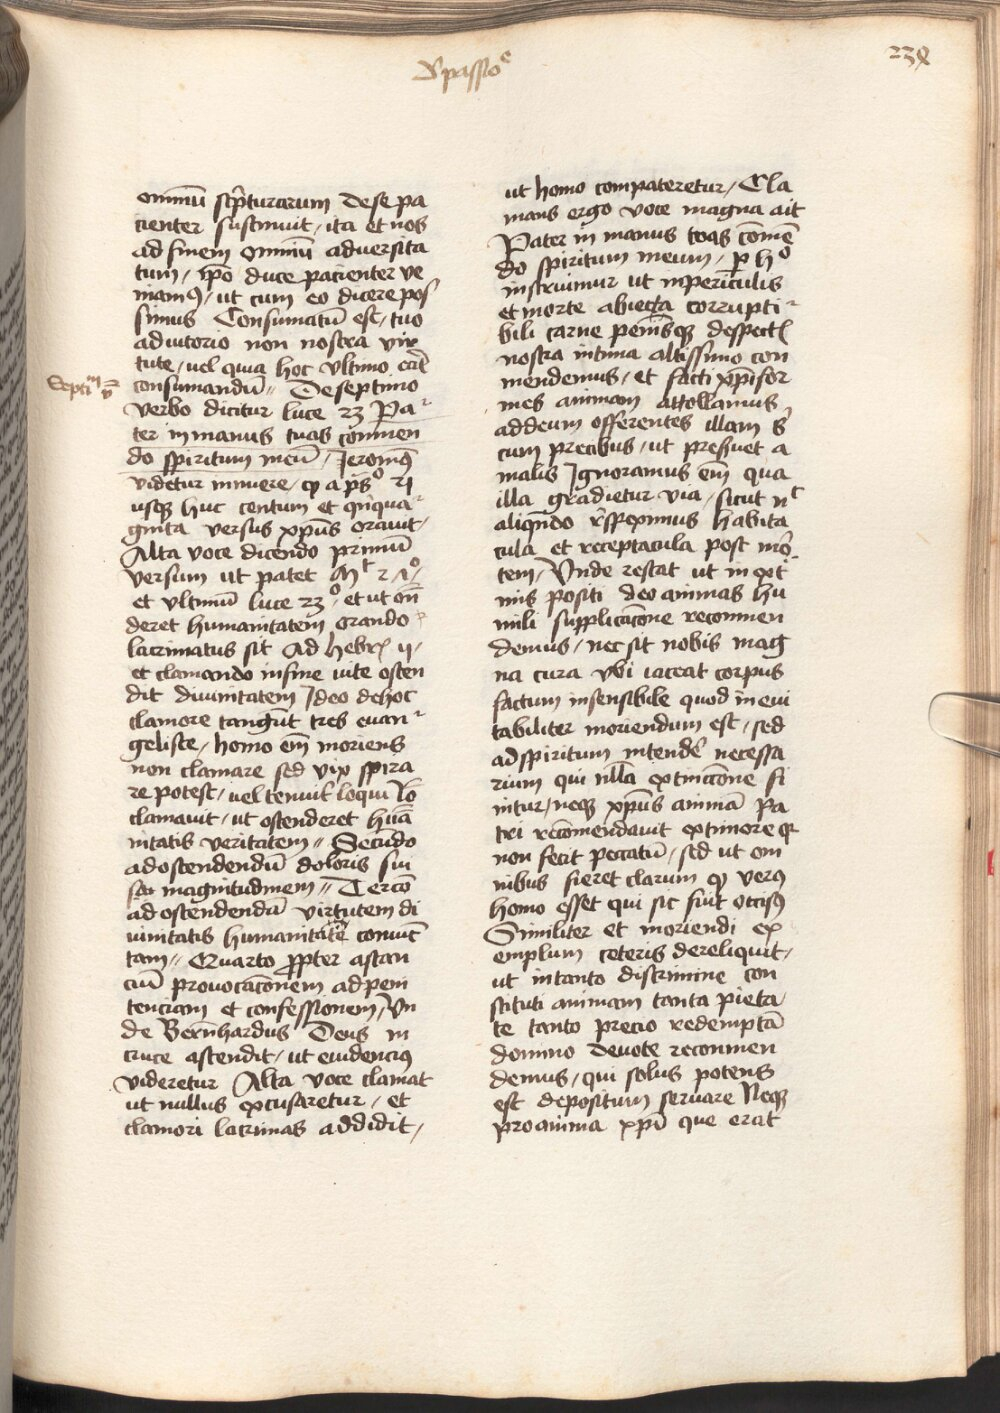 De passioe
omniū scpturarum de se pa
cienter sustinuit / ita et nos
ad finem omniū adversita
tum / xpo duce pacienter ve
niamus / ut cum eo dicere pos
simus Consumatū est / tuo
adiutorio non nostra vir
tute / uel quia hoc ultimo erāt
consumandū // De septimo
verbo dicitur luce 23 Pa
ter in manus tuas commen
do spiritum meū / Jeronimꝰ
videtur innuere / ꝙ a psº 21
usqꝫ huc centum et qnqua
ginta versus xpus oravit /
Alta voce dicendo primū
versum ut patet Mt 27º /
et ultimū luce 23º / et ut ōn
deret humanitatem orando
lacrimatus sit ad hebre
et clamando in fine vite osten
dit diuinitatem Ideo de hoc
clamore tangūt tres evan
geliste / homo em moriens
non clamare sed vix spira
re potest / uel tenuit loqui Io
clamauit / ut ostenderet huā
nitatis veritatem // Secūdo
ad ostendendū doloris sui
magnitudinem // Tercō
ad ostendendā virtutem di
uinitatis humanitate coniunc
tam // Quarto ppter astan
ciū provocacōnem ad peni
tenciam et confessionem / Un
de Bernhardus Deus in
cruce ascendit / ut euidenciꝰ
videretur Alta voce clamat
ut nullus excusaretur / et
clamori lacrimas addidit /
Septimū v
ut homo compateretur / Cla
mans ergo voce magna ait
Pater in manus tuas comē
do spiritum meum / p hº
instruimur ut in periculis
et morte abiecta corrupti
bili carne penisqꝫ despectis
nostra intima altissimo con
mendemus / et facti xpifor
mes animam attollamus
ad deum offerentes illam
cum precibus / ut preseruet a
malis Ignoramus em qua
illa gradietur via / sicut nc
aliqndo respeximus habita
cula et receptacula post mor
tem / Unde restat ut in ext
mis positi deo animas hu
mili supplicacōne recommen
demus / nec sit nobis mag
na cura ubi iaceat corpus
factum insensibile quod inevi
tabiliter moriendum est / sed
ad spiritum intende necessa
rium qui nulla extinccōne fi
nitur / neqꝫ xpus animā pa
tri recomendauit ex timore qr
non fecit peccatū / sed ut om
nibus fieret clarum ꝙ verꝰ
homo esset qui sic fuit occisꝰ
Similiter et moriendi ex
emplum ceteris dereliquit /
ut in tanto discrimine con
stituti animam tanta pieta
te tanto precio redemptā
domino devote recommen
demus / qui solus potens
est depositum servare Neqꝫ
pro anima xpi que erat